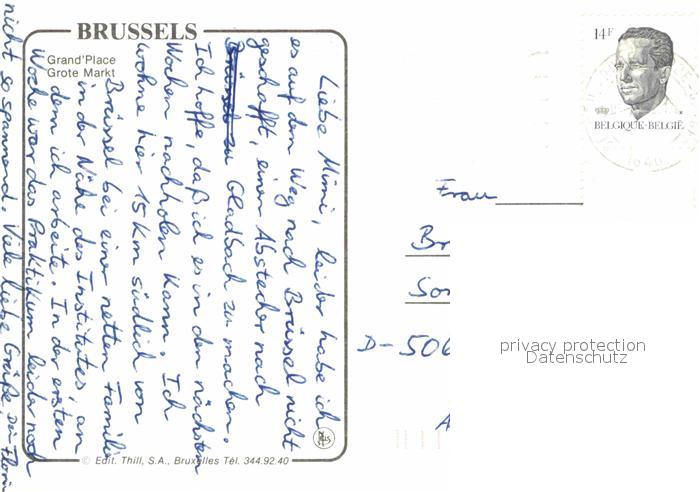 BRUSSELS
Grand'Place
Grote Markt
Liebe Mimi, leider habe ich
es auf dem Weg nach Brüssel nicht
geschafft, einen Abstecher nach
Brüssel zu Gladbach zu machen.
Ich hoffe, daß ich es in den nächsten
Wochen nachholen kann. Ich
wohne hier 15 km südlich von
Brüssel bei einer netten Familie
in der Nähe des Institutes, an
dem ich arbeite. In der ersten
Woche war das Praktikum leider noch
nicht so spannend. Viele liebe Grüße, Dein Florin
© Edit. Thill, S.A., Bruxelles Tél. 344.92.40
14F
BELGIQUE-BELGIË
1640
Frau
Br
Son
D-506
A
privacy protection
Datenschutz